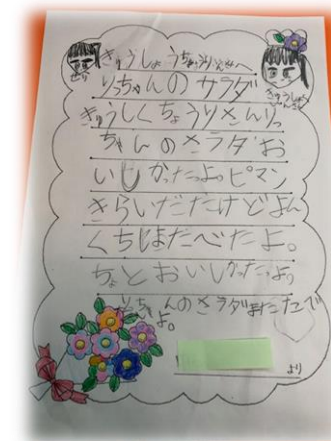 きゅうしょくちょうりいんさんへ
りっちゃんのサラダ
きゅうしくちょうりさんりっ
ちゃんのさラダお
いしかったよ。ピマン
きらいだたけどよん
くちはたべたよ。
ちょとおいしかったよ。
りちゃんのさラダまたたべ
よ。
より